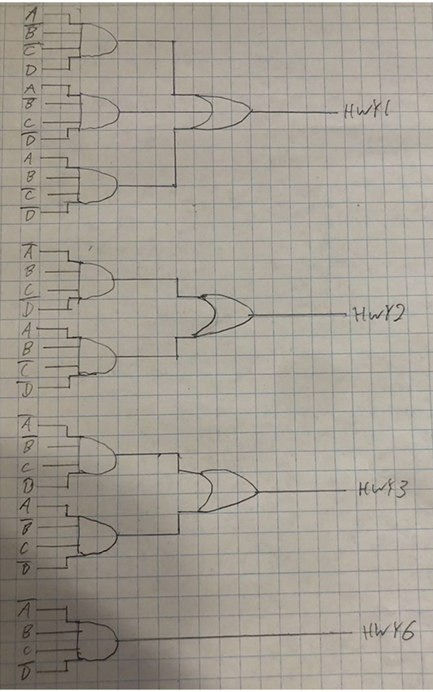 A
B̅
C̅
D
A
B̅
C
D̅
HWY1
A
B
C̅
D̅
A̅
B
C
D̅
HWY2
A
B̅
C̅
D̅
A̅
B̅
C
D
HWY3
A
B̅
C
D̅
A̅
B
C
D̅
HWY6